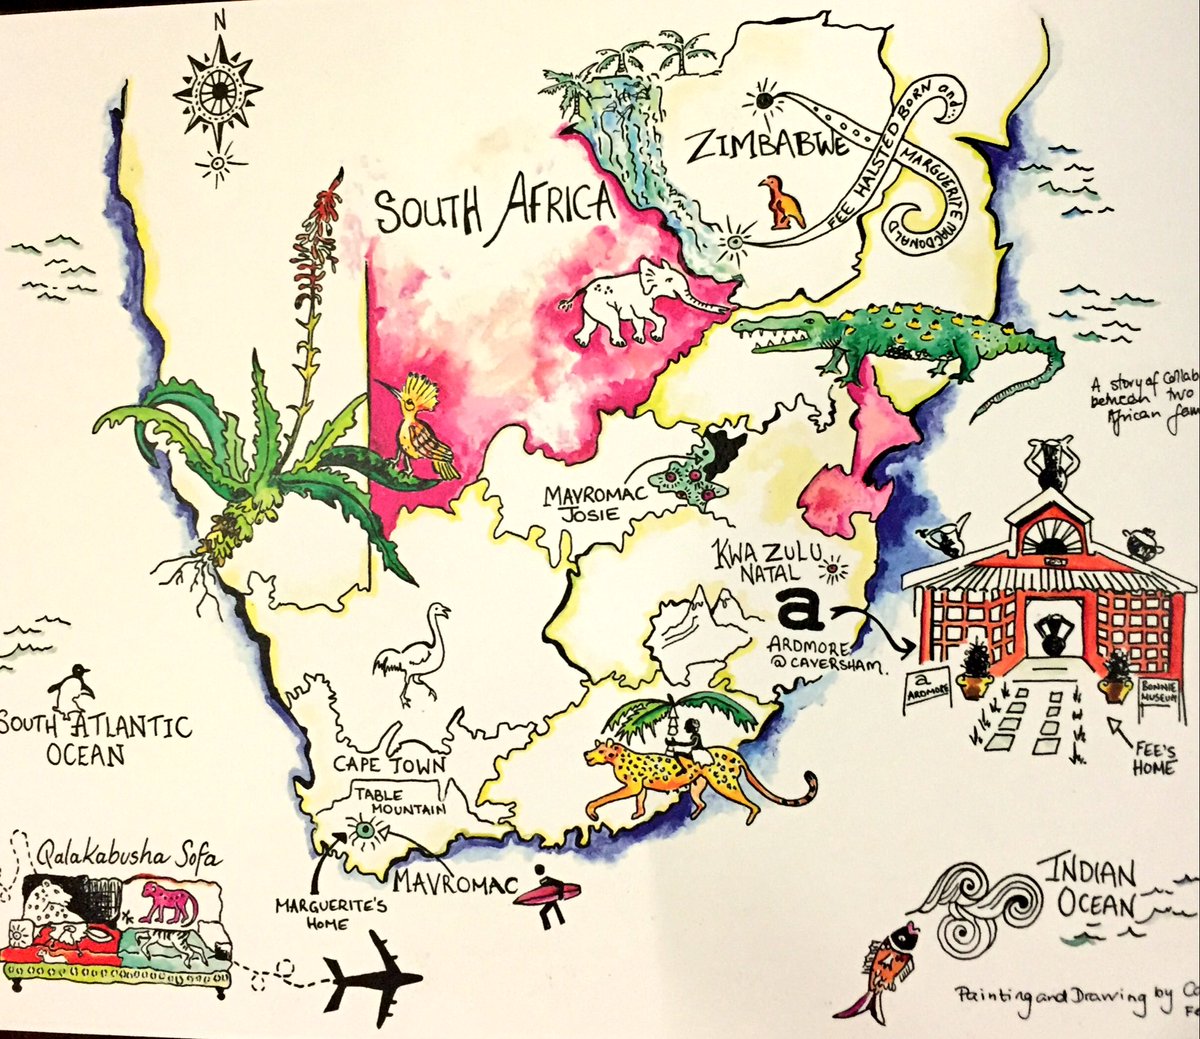 N
SOUTH AFRICA
ZIMBABWE
FEE HALSTED BORN and
MARGUERITE MACDONALD
A story of Collab
between two
African fam
MAVROMAC
JOSIE
KWA ZULU
NATAL
a
ARDMORE
@ CAVERSHAM.
a
ARDMORE
BONNIE
MUSEUM
FEE'S
HOME
SOUTH ATLANTIC
OCEAN
CAPE TOWN
TABLE
MOUNTAIN
MAVROMAC
MARGUERITE'S
HOME
Qalakabusha Sofa
INDIAN
OCEAN
Painting and Drawing by Co
Fe